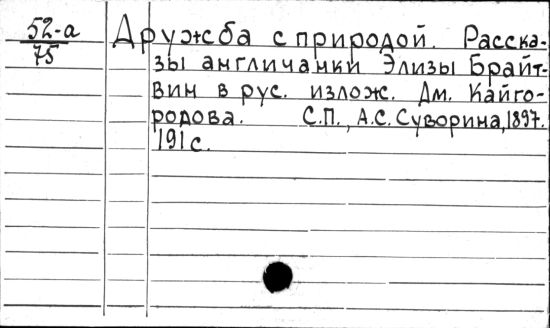 52-а
75
Дружба с природой. Расска-
зы англичанки Элизы Брайт-
вин в рус. излож. Дм. Кайго-
родова. С.П., А.С. Суворина, 1897.
191 с.